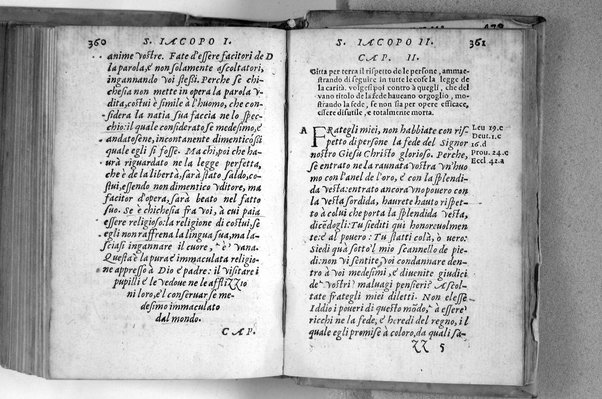 360 S. IACOPO I.
anime vostre. Fate d'essere facitori de D
la parola, e non solamente ascoltatori,
ingannando voi stessi. Perche se chi-
chesia non mette in opera la parola v
dita, costui è simile à l'huomo, che con-
sidera la natia sua faccia ne lo spec-
chio: il quale considerato se medesimo, è
andatosene, incontanente dimenticossi
quale egli si fosse. Ma chi, poi che ha-
urà riguardato ne la legge perfetta,
che è de la libertà, sarà stato saldo, co-
stui, essendo non dimentico vditore, ma
facitor d'opera, sarà beato nel fatto
suo. Se è chichesia fra voi, à cui paia
essere religioso: la religione di costui, se
egli non raffrena la lingua sua, ma la-
sciasi ingannare il cuore, è vana.
Questa è la pura e immaculata religio-
ne appresso à Dio e padre: il visitare i
pupilli e le vedoue ne le afflizzio
ni loro, e'l conseruar se me-
desimo immaculato
dal mondo.
CAP.
S. IACOPO II. 361
CAP. II.
Gitta per terra il rispetto de le persone, ammae-
strando di seguire in tutte le cose la legge de
la carità. volgesi poi contro à quegli, che del
vano titolo de la fede haueano orgoglio, mo-
strando la fede, se non sia per opere efficace,
essere disutile, e totalmente morta.
A Frategli miei, non habbiate con ris- Leu 19.c
petto di persone la fede del Signor Deut.1.c
nostro Giesu Christo glorioso. Perche, 16.d
se entrato ne la raunata vostra vn'huo Prou.24.c
mo con l'anel de l'oro, e con la splendi- Eccl 42.a
da vesta: entrato ancora vn pouero con
la vesta sordida, haurete hauto rispet-
to à colui che porta la splendida vesta,
dicẽdogli: Tu siediti qui honoreuolmen-
te: e al pouero: Tu statti colà, ò vero:
Siedi quà sott'o'l mio scannello de pie-
di: non vi sentite, voi condannare den-
tro à voi medesimi, e diuenite giudici
de' vostri maluagi pensieri? Ascol-
tate frategli miei diletti. Non elesse
Iddio i poueri di questo mõdo, à essere
ricchi ne la fede, e heredi del regno, il
quale egli promise à coloro, da quali fa-
ZZ 5